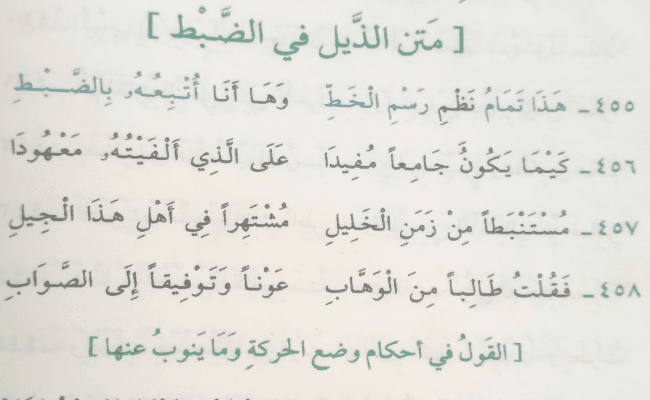 [ مَتن الذَّيل في الضَّبْط ]
٤٥٥ ـ هَذَا تَمَامُ نَظْمِ رَسْمِ الْخَطِّ وَهَا أَنَا أُتْبِعُهُ بِالضَّبْطِ
٤٥٦ ـ كَيْمَا يَكُونُ جَامِعاً مُفِيدَا عَلَى الَّذِي أَلْفَيْتُهُ مَعْهُودَا
٤٥٧ ـ مُسْتَنْبَطاً مِنْ زَمَنِ الْخَلِيلِ مُشْتَهِراً فِي أَهْلِ هَذَا الْجِيلِ
٤٥٨ ـ فَقُلْتُ طَالِباً مِنَ الْوَهَّابِ عَوْناً وَتَوْفِيقاً إِلَى الصَّوَابِ
[ القَولُ في أحكام وضع الحركةِ وَمَا يَنوبُ عنها ]